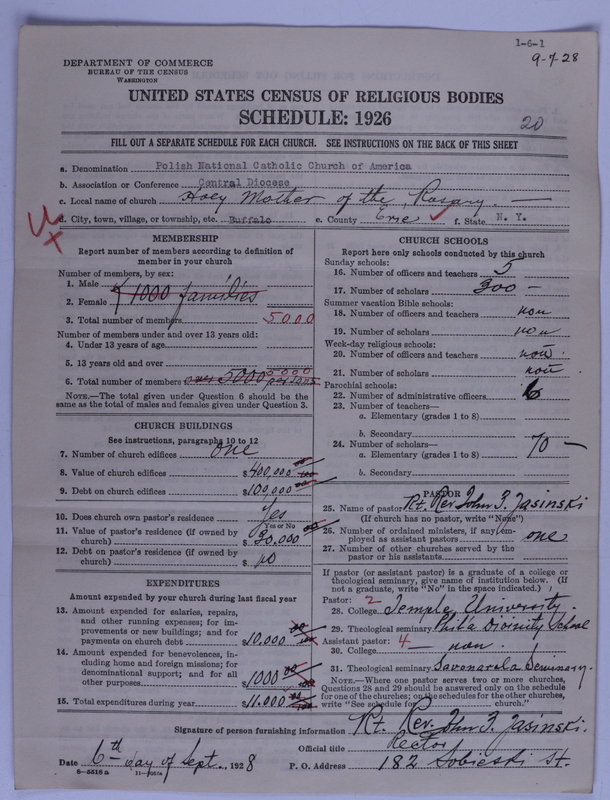 1-6-1
9-7-28
DEPARTMENT OF COMMERCE
BUREAU OF THE CENSUS
WASHINGTON
UNITED STATES CENSUS OF RELIGIOUS BODIES
SCHEDULE: 1926
20
FILL OUT A SEPARATE SCHEDULE FOR EACH CHURCH. SEE INSTRUCTIONS ON THE BACK OF THIS SHEET
a. Denomination Polish National Catholic Church of America
b. Association or Conference Central Diocese
c. Local name of church Holy Mother of the Rosary.
d. City, town, village, or township, etc. Buffalo e. County Erie f. State N. Y.
MEMBERSHIP
Report number of members according to definition of
member in your church
Number of members, by sex:
1. Male
1000 families
2. Female
3. Total number of members 5000
Number of members under and over 13 years old:
4. Under 13 years of age
5. 13 years old and over
6. Total number of members over 5000 5000 persons
NOTE.—The total given under Question 6 should be the
same as the total of males and females given under Question 3.
CHURCH BUILDINGS
See instructions, paragraphs 10 to 12
7. Number of church edifices one
8. Value of church edifices $400,000 00/100
9. Debt on church edifices $109,000
10. Does church own pastor's residence Yes
Yes or No
11. Value of pastor's residence (if owned by
church) $30.000 00
12. Debt on pastor's residence (if owned by
church) $ no
EXPENDITURES
Amount expended by your church during last fiscal year
13. Amount expended for salaries, repairs,
and other running expenses; for im-
provements or new buildings; and for
payments on church debt $10.000 00/100
14. Amount expended for benevolences, in-
cluding home and foreign missions; for
denominational support; and for all
other purposes $1000 00/100
15. Total expenditures during year $11.000 00/100
CHURCH SCHOOLS
Report here only schools conducted by this church
Sunday schools:
16. Number of officers and teachers 5
17. Number of scholars 300 —
Summer vacation Bible schools:
18. Number of officers and teachers non
19. Number of scholars non
Week-day religious schools:
20. Number of officers and teachers non
21. Number of scholars non
Parochial schools:
22. Number of administrative officers 6
23. Number of teachers—
a. Elementary (grades 1 to 8)
b. Secondary
24. Number of scholars—
a. Elementary (grades 1 to 8) 70 —
b. Secondary
PASTOR
25. Name of pastor Rt. Rev. John Z. Jasinski
(If church has no pastor, write "None")
26. Number of ordained ministers, if any, em-
ployed as assistant pastors one
27. Number of other churches served by the
pastor or his assistants
If pastor (or assistant pastor) is a graduate of a college or
theological seminary, give name of institution below. (If
not a graduate, write "No" in the space indicated.)
Pastor: 2
28. College Temple University.
29. Theological seminary Phil'a Divinity School
Assistant pastor: 4
30. College — non.
31. Theological seminary Savonarola Seminary.
NOTE.—Where one pastor serves two or more churches,
Questions 28 and 29 should be answered only on the schedule
for one of the churches; on the schedules for the other churches,
write "See schedule for church."
Signature of person furnishing information Rt. Rev. John Z. Jasinski.
Official title Rector
Date 6-th day of Sept., 1928 P. O. Address 182 Sobieski St.
8-5518a 11-9051a